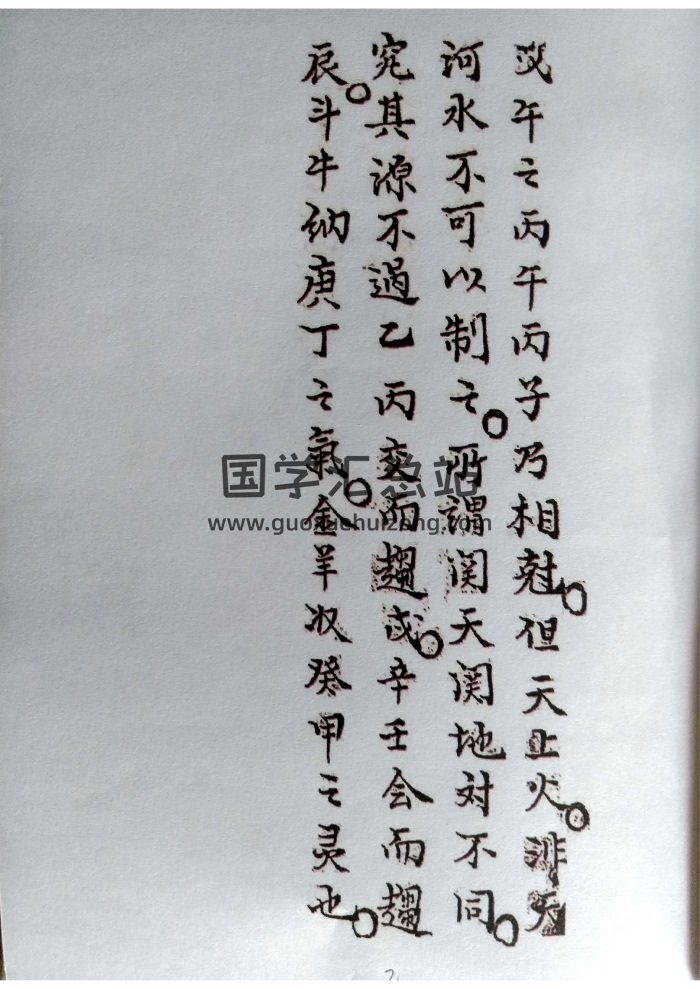 戊午之丙午丙子乃相尅。但天上火。非天
河水不可以制之。所谓関天関地对不同。
究其源不過乙丙交而趨戌。辛壬会而趨
辰。斗牛纳庚丁之氣。金羊収癸甲之灵也。
国学汇总站
www.guoxuehuizong.com